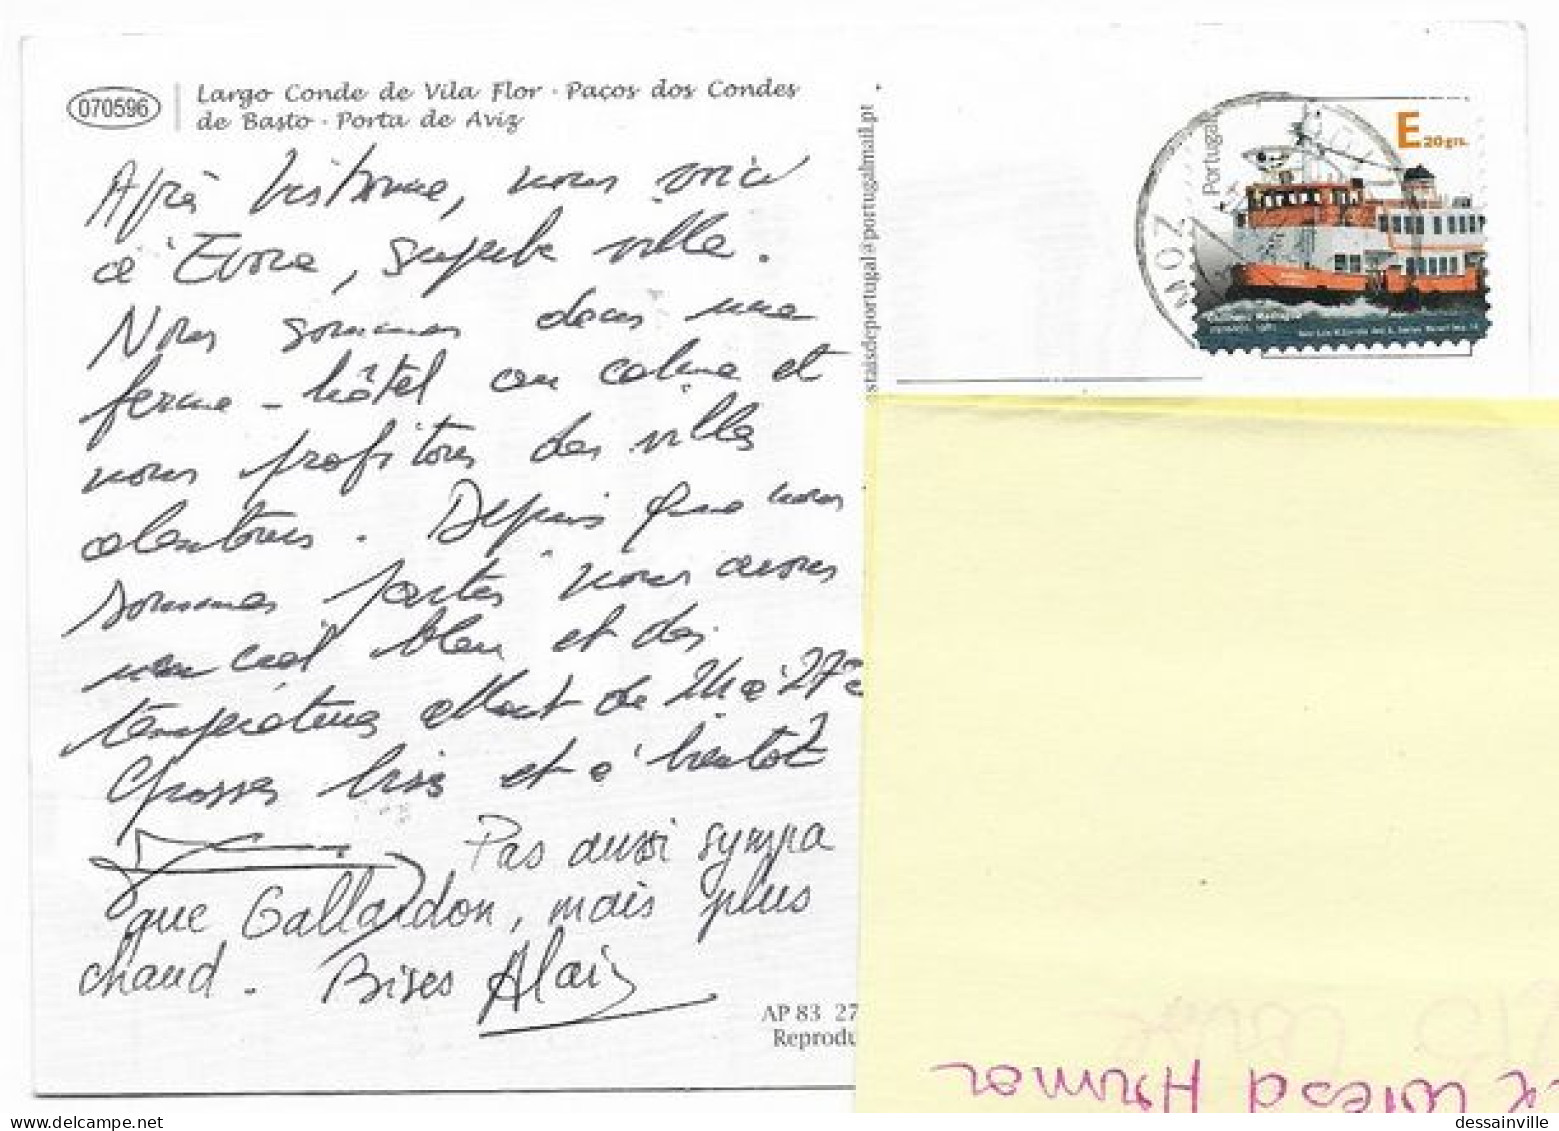 070596
Largo Conde de Vila Flor · Paços dos Condes
de Basto · Porta de Aviz
Après Lisbonne, nous voici
à Evora, superbe ville.
Nous sommes dans une
ferme-hôtel au calme et
nous profitons des villes
alentours. Depuis que nous
sommes partis nous avons
un ciel bleu et des
températures allant de 24 à 27°
Grosses bises et à bientôt
Pas aussi sympa
que Gallardon, mais plus
chaud. Bises Alain
AP 83 27
Reprodu
taisdeportugal@portugalmail.pt
Portugal
E20grs.
MOZ
dessainville